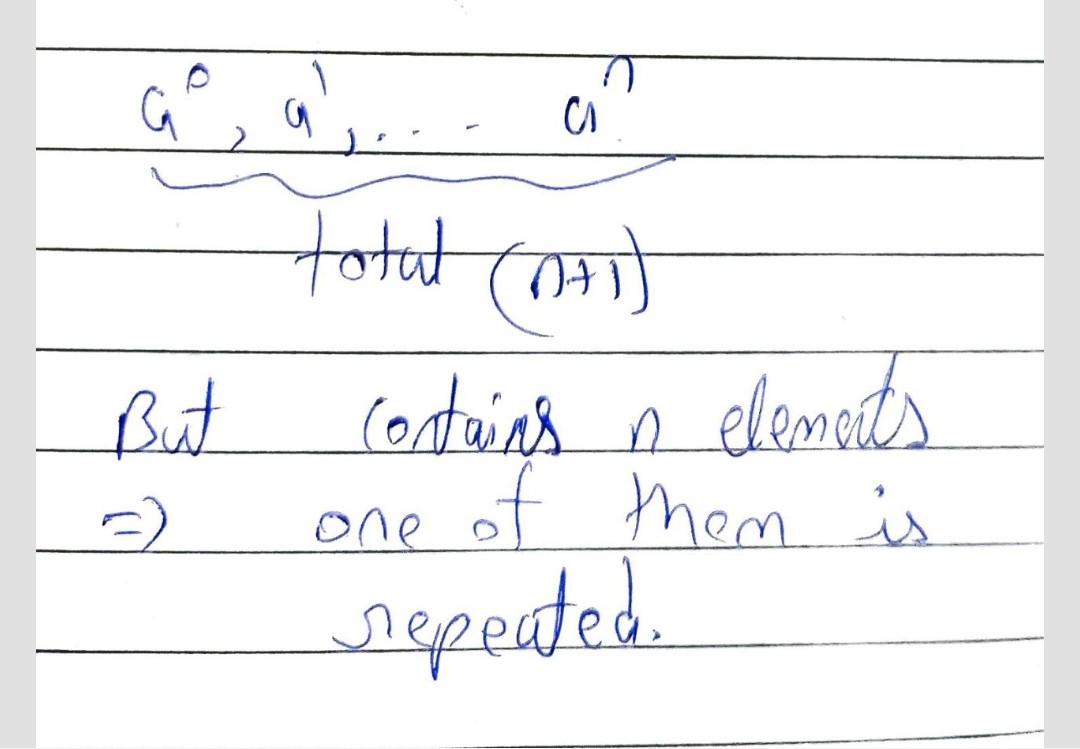 a⁰, a¹, ... - aⁿ
total (n+1)
But contains n elements
=> one of them is
repeated.